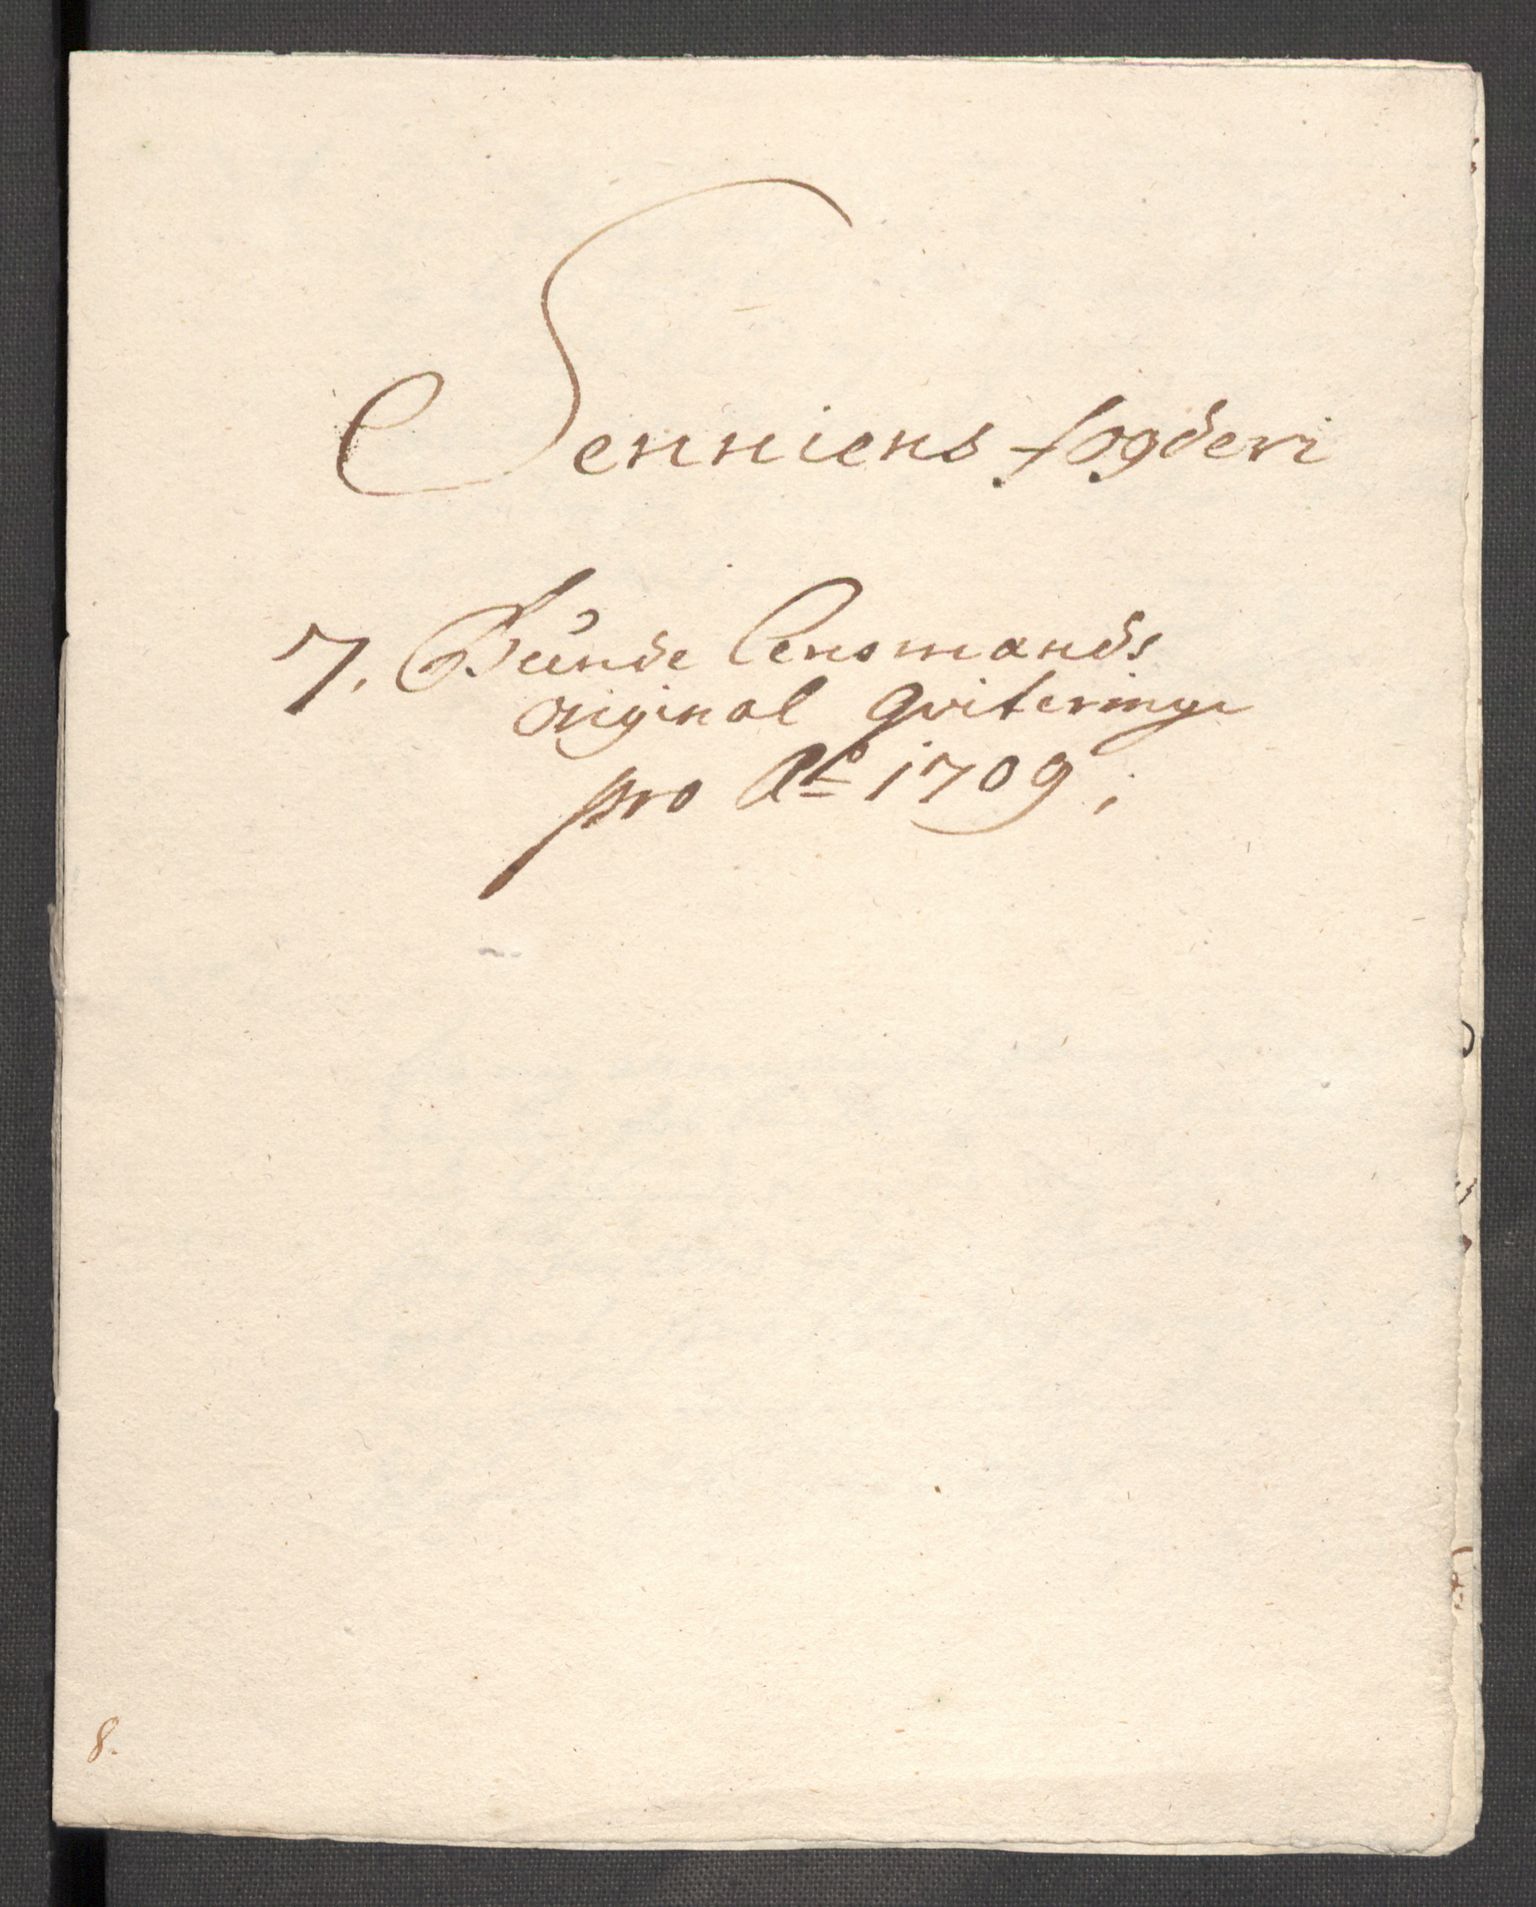 Senniens fogderi
7. Bunde Lensmands
original qviteringe
pro Ao 1709.
8.